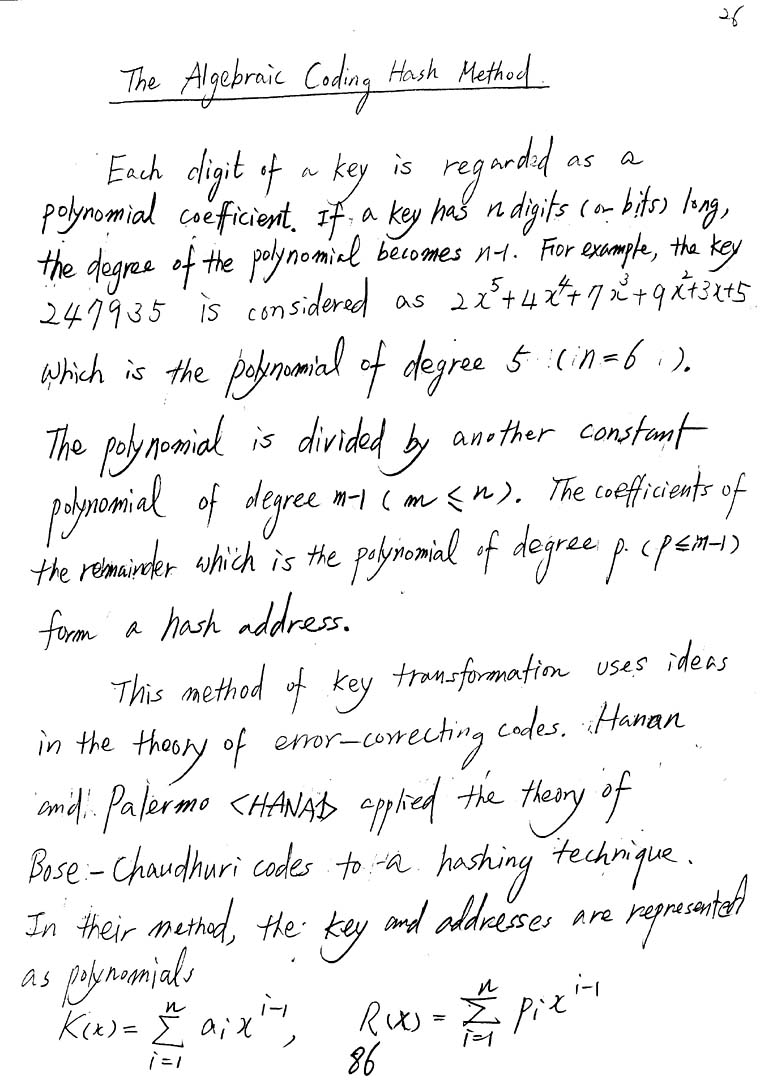 26
The Algebraic Coding Hash Method.
Each digit of a key is regarded as a
polynomial coefficient. If a key has n digits (or bits) long,
the degree of the polynomial becomes n-1. For example, the key
247935 is considered as 2x⁵+4x⁴+7x³+9x²+3x+5
which is the polynomial of degree 5 (n=6).
The polynomial is divided by another constant
polynomial of degree m-1 (m ≤ n). The coefficients of
the remainder which is the polynomial of degree p. (p≤m-1)
form a hash address.
This method of key transformation uses ideas
in the theory of error-correcting codes. Hanan
and Palermo <HANA1> applied the theory of
Bose-Chaudhuri codes to a hashing technique.
In their method, the key and addresses are represented
as polynomials
K(x) = Σ_{i=1}^{n} aᵢ x^{i-1}, R(x) = Σ_{i=1}^{n} pᵢ x^{i-1}
86